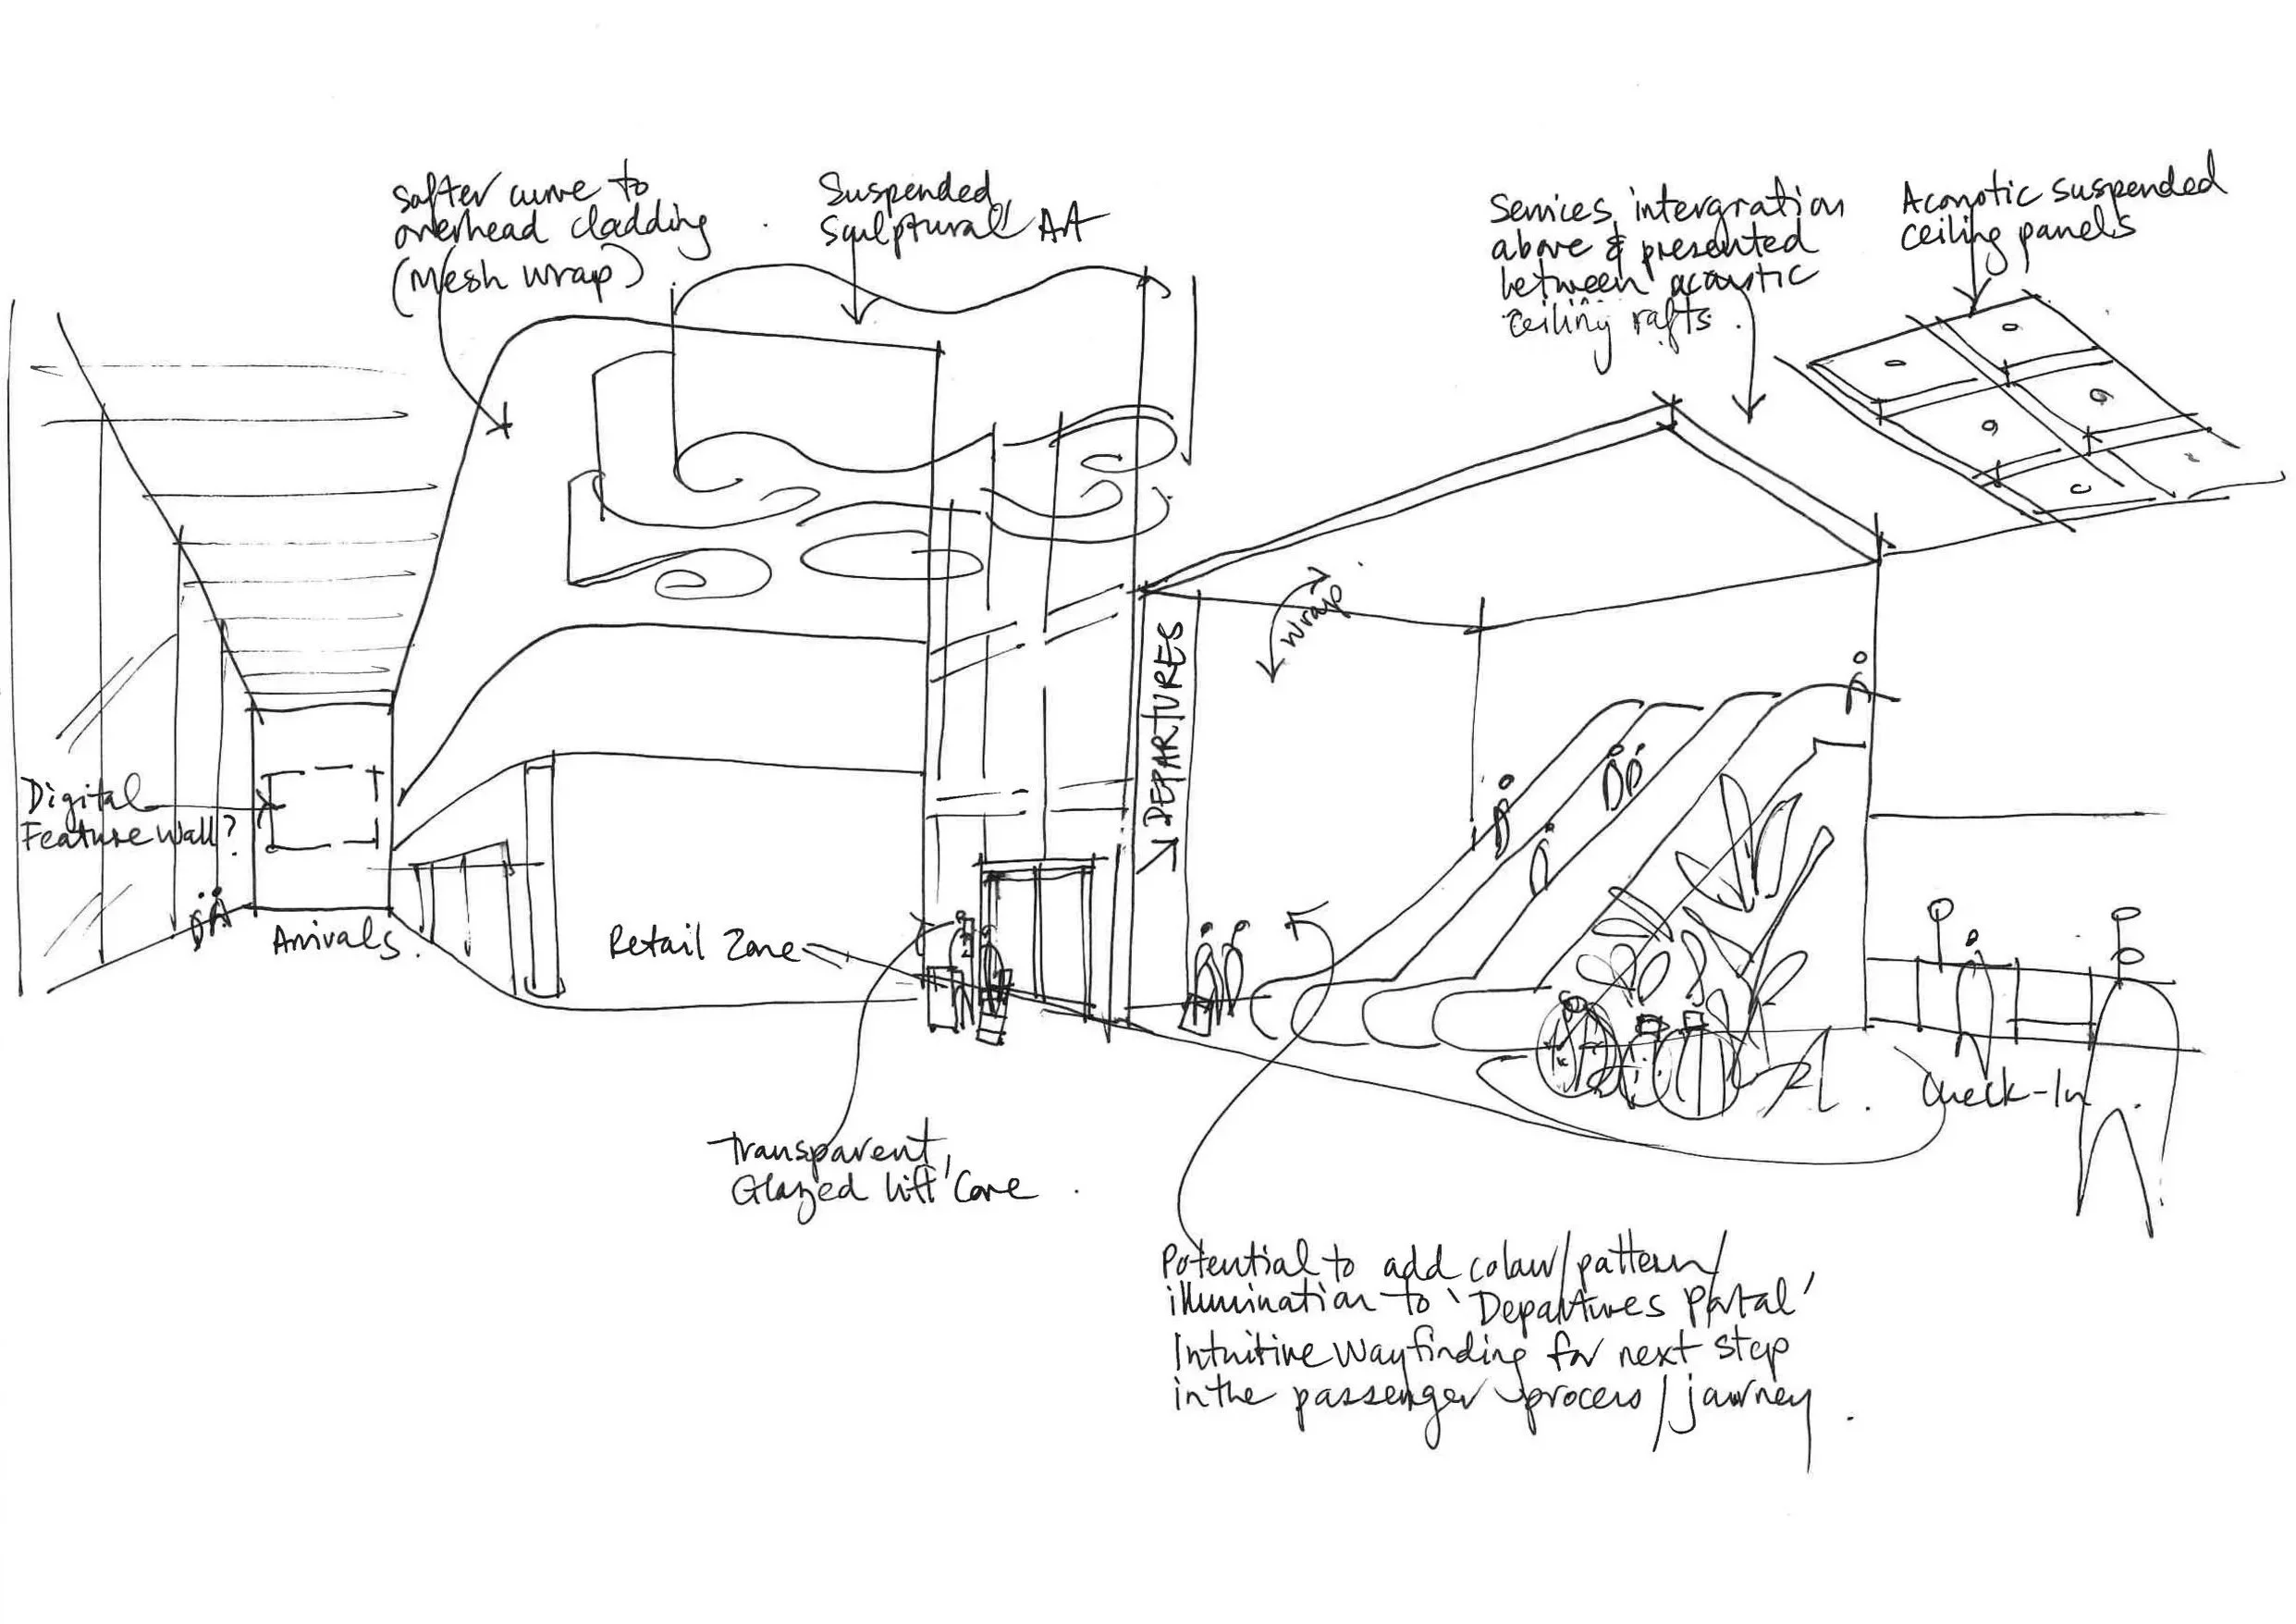 Softer curve to
overhead cladding
(Mesh wrap)
Suspended
Sculptural Art
Services intergration
above & presented
between acoustic
ceiling rafts.
Acoustic suspended
ceiling panels
wrap
DEPARTURES
Digital
Feature Wall?
Arrivals.
Retail Zone
Check-In
Transparent
Glazed lift core
Potential to add colour/pattern/
illumination to 'Departures portal'
Intuitive wayfinding for next step
in the passenger process/journey.